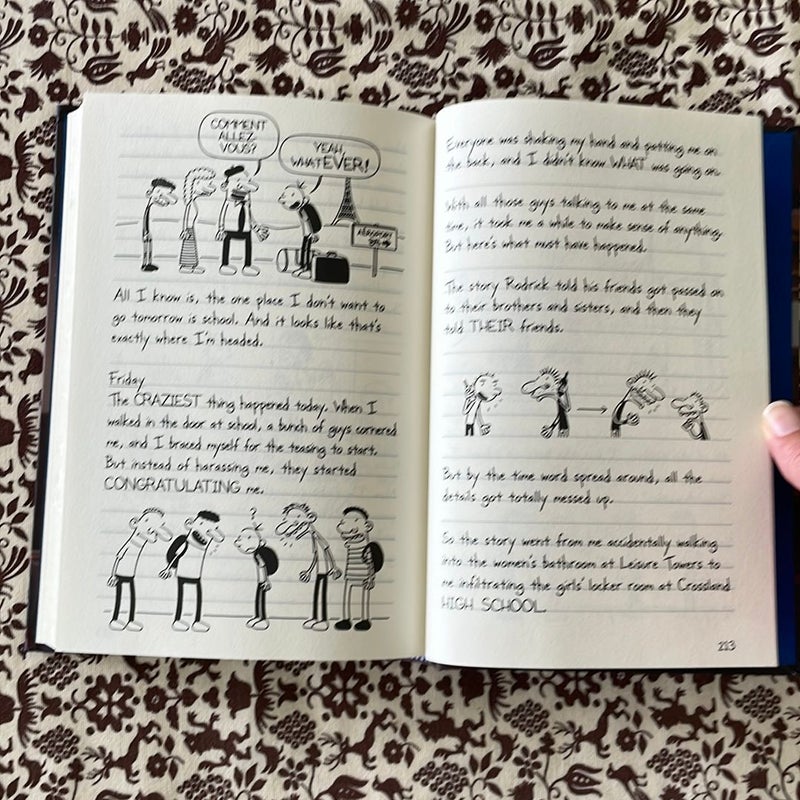 COMMENT
ALLEZ-
VOUS?
YEAH,
WHATEVER!
AÉROPORT
All I know is, the one place I don't want to
go tomorrow is school. And it looks like that's
exactly where I'm headed.
Friday
The CRAZIEST thing happened today. When I
walked in the door at school, a bunch of guys cornered
me, and I braced myself for the teasing to start.
But instead of harassing me, they started
CONGRATULATING me.
?
Everyone was shaking my hand and patting me on
the back, and I didn't know WHAT was going on.
With all those guys talking to me at the same
time, it took me a while to make sense of anything.
But here's what must have happened.
The story Rodrick told his friends got passed on
to their brothers and sisters, and then they
told THEIR friends.
But by the time word spread around, all the
details got totally messed up.
So the story went from me accidentally walking
into the women's bathroom at Leisure Towers to
me infiltrating the girls' locker room at Crossland
HIGH SCHOOL.
213